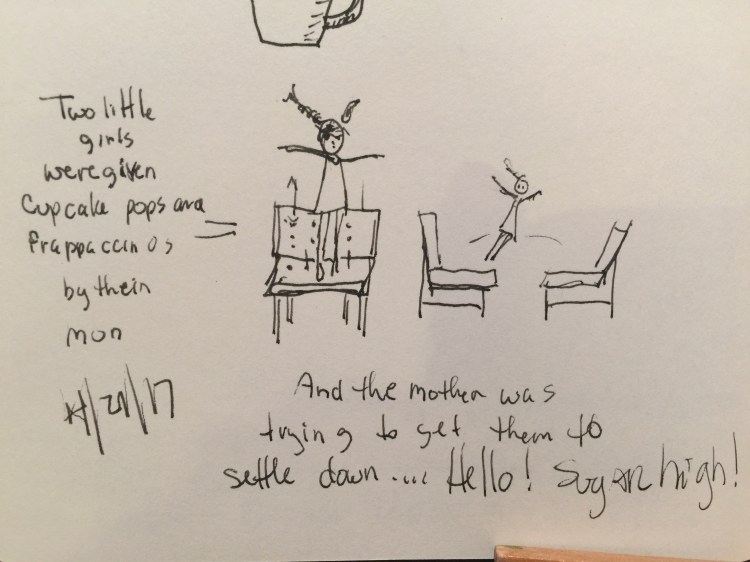 Two little
girls
were given
Cupcake pops and
frappaccinos
by thein
mon
=
/21/17
And the mother was
trying to get them to
settle down.... Hello! Sugar high!